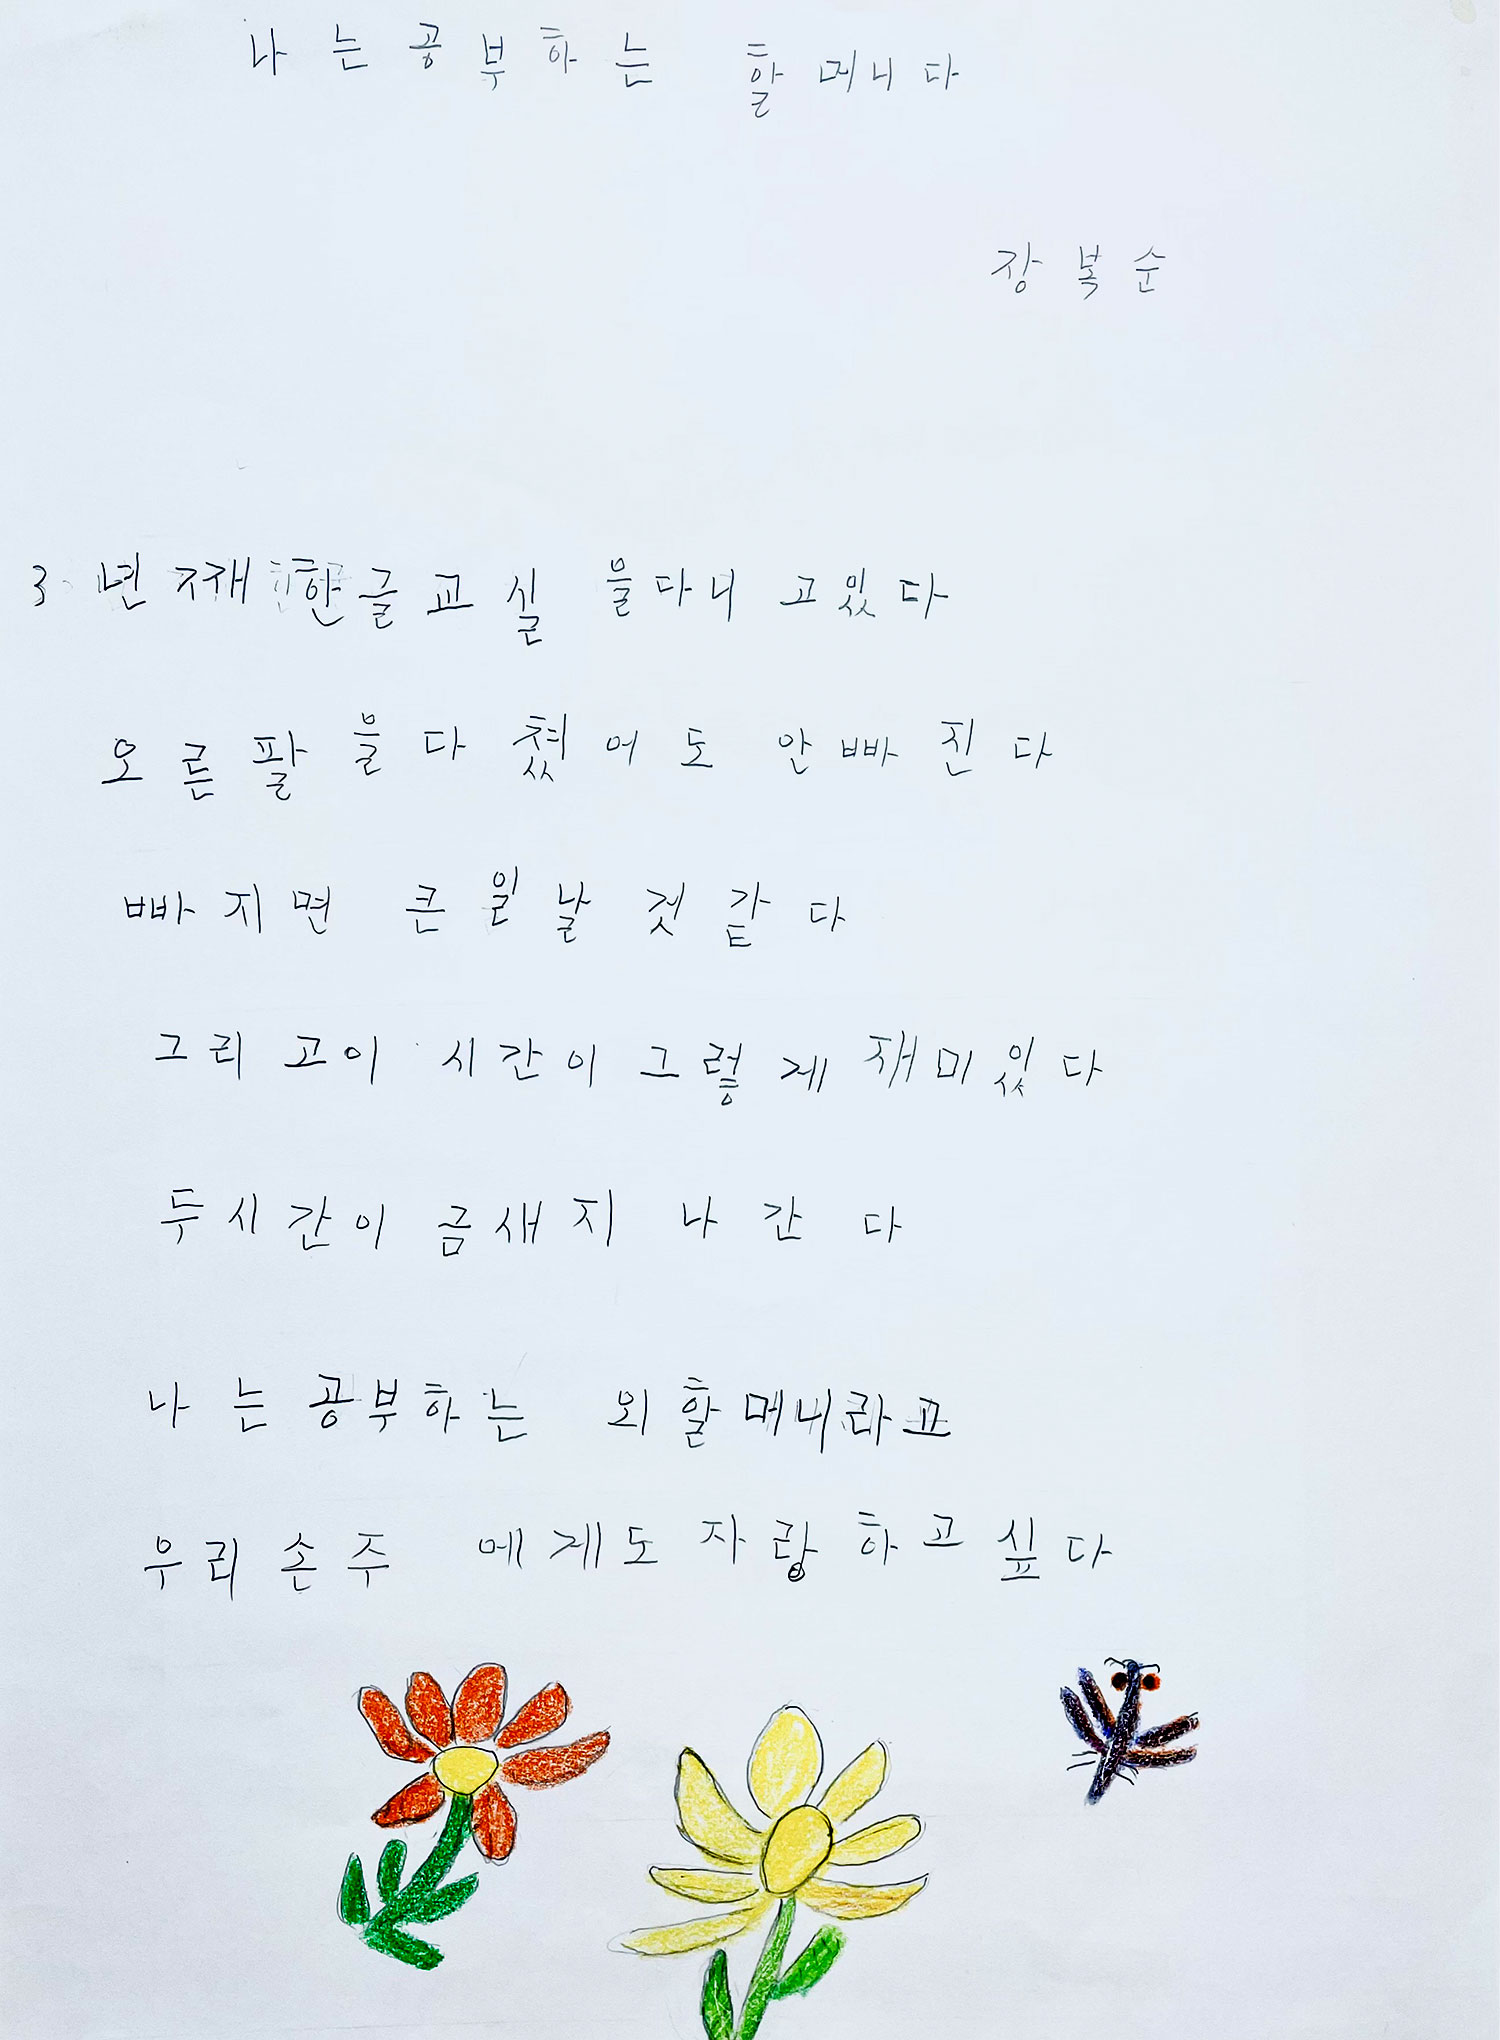 나는공부하는 할머니다
장복순
3년째 한글교실을다니고있다
오른팔을다쳤어도 안빠진다
빠지면 큰일날 것 같다
그리고이 시간이 그렇게 재미있다
두시간이 금새지나간다
나는공부하는 외할머니라고
우리손주 에게도 자랑하고싶다